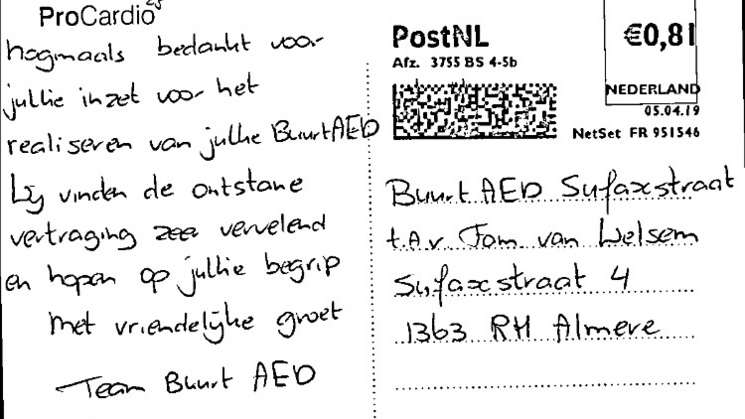 ProCardio
nogmaals bedankt voor
jullie inzet voor het
realiseren van jullie BuurtAED
Wij vinden de ontstane
vertraging zeer vervelend
en hopen op jullie begrip
Met vriendelijke groet
Team Buurt AED
PostNL
Afz. 3755 BS 4-5b
€0,81
NEDERLAND
05.04.19
NetSet FR 951546
Buurt AED Sufaxstraat
t.a.v Tom van Welsem
Sufaxstraat 4
1363 RH Almere